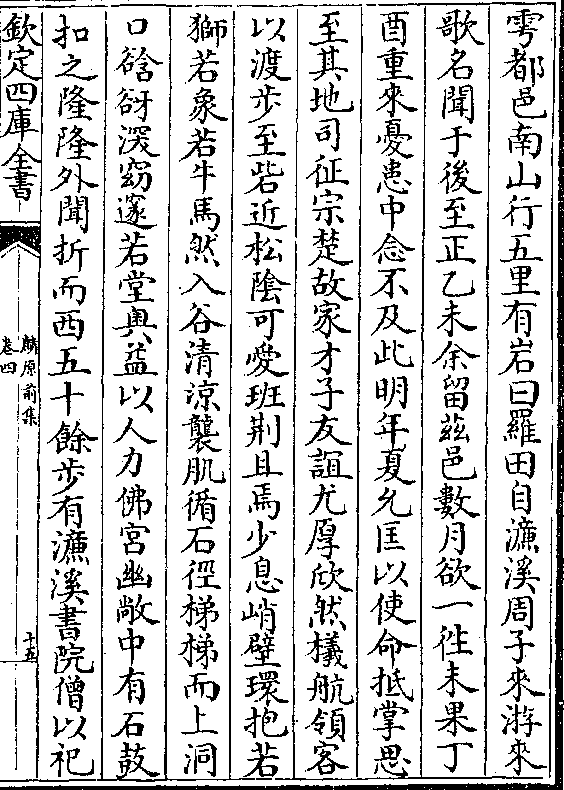 雩都邑南山行五里有岩曰羅田自濂溪周子來游來
歌名聞于後至正乙未余留茲邑數月欲一徃未果丁
酉重來憂患中念不及此明年夏允匡以使命抵掌思
至其地司征宗楚故家才子友誼尤厚欣然檥航領客
以渡步至砦近松陰可愛班荆且焉少息峭壁環抱若
獅若象若牛馬然入谷清凉襲肌循石徑梯梯而上洞
口谽谺深窈邃若堂奥益以人力佛宫幽敞中有石鼓
扣之隆隆外聞折而西五十餘步有濂溪書院僧以祀
欽定四庫全書
麟原前集
卷四
十五